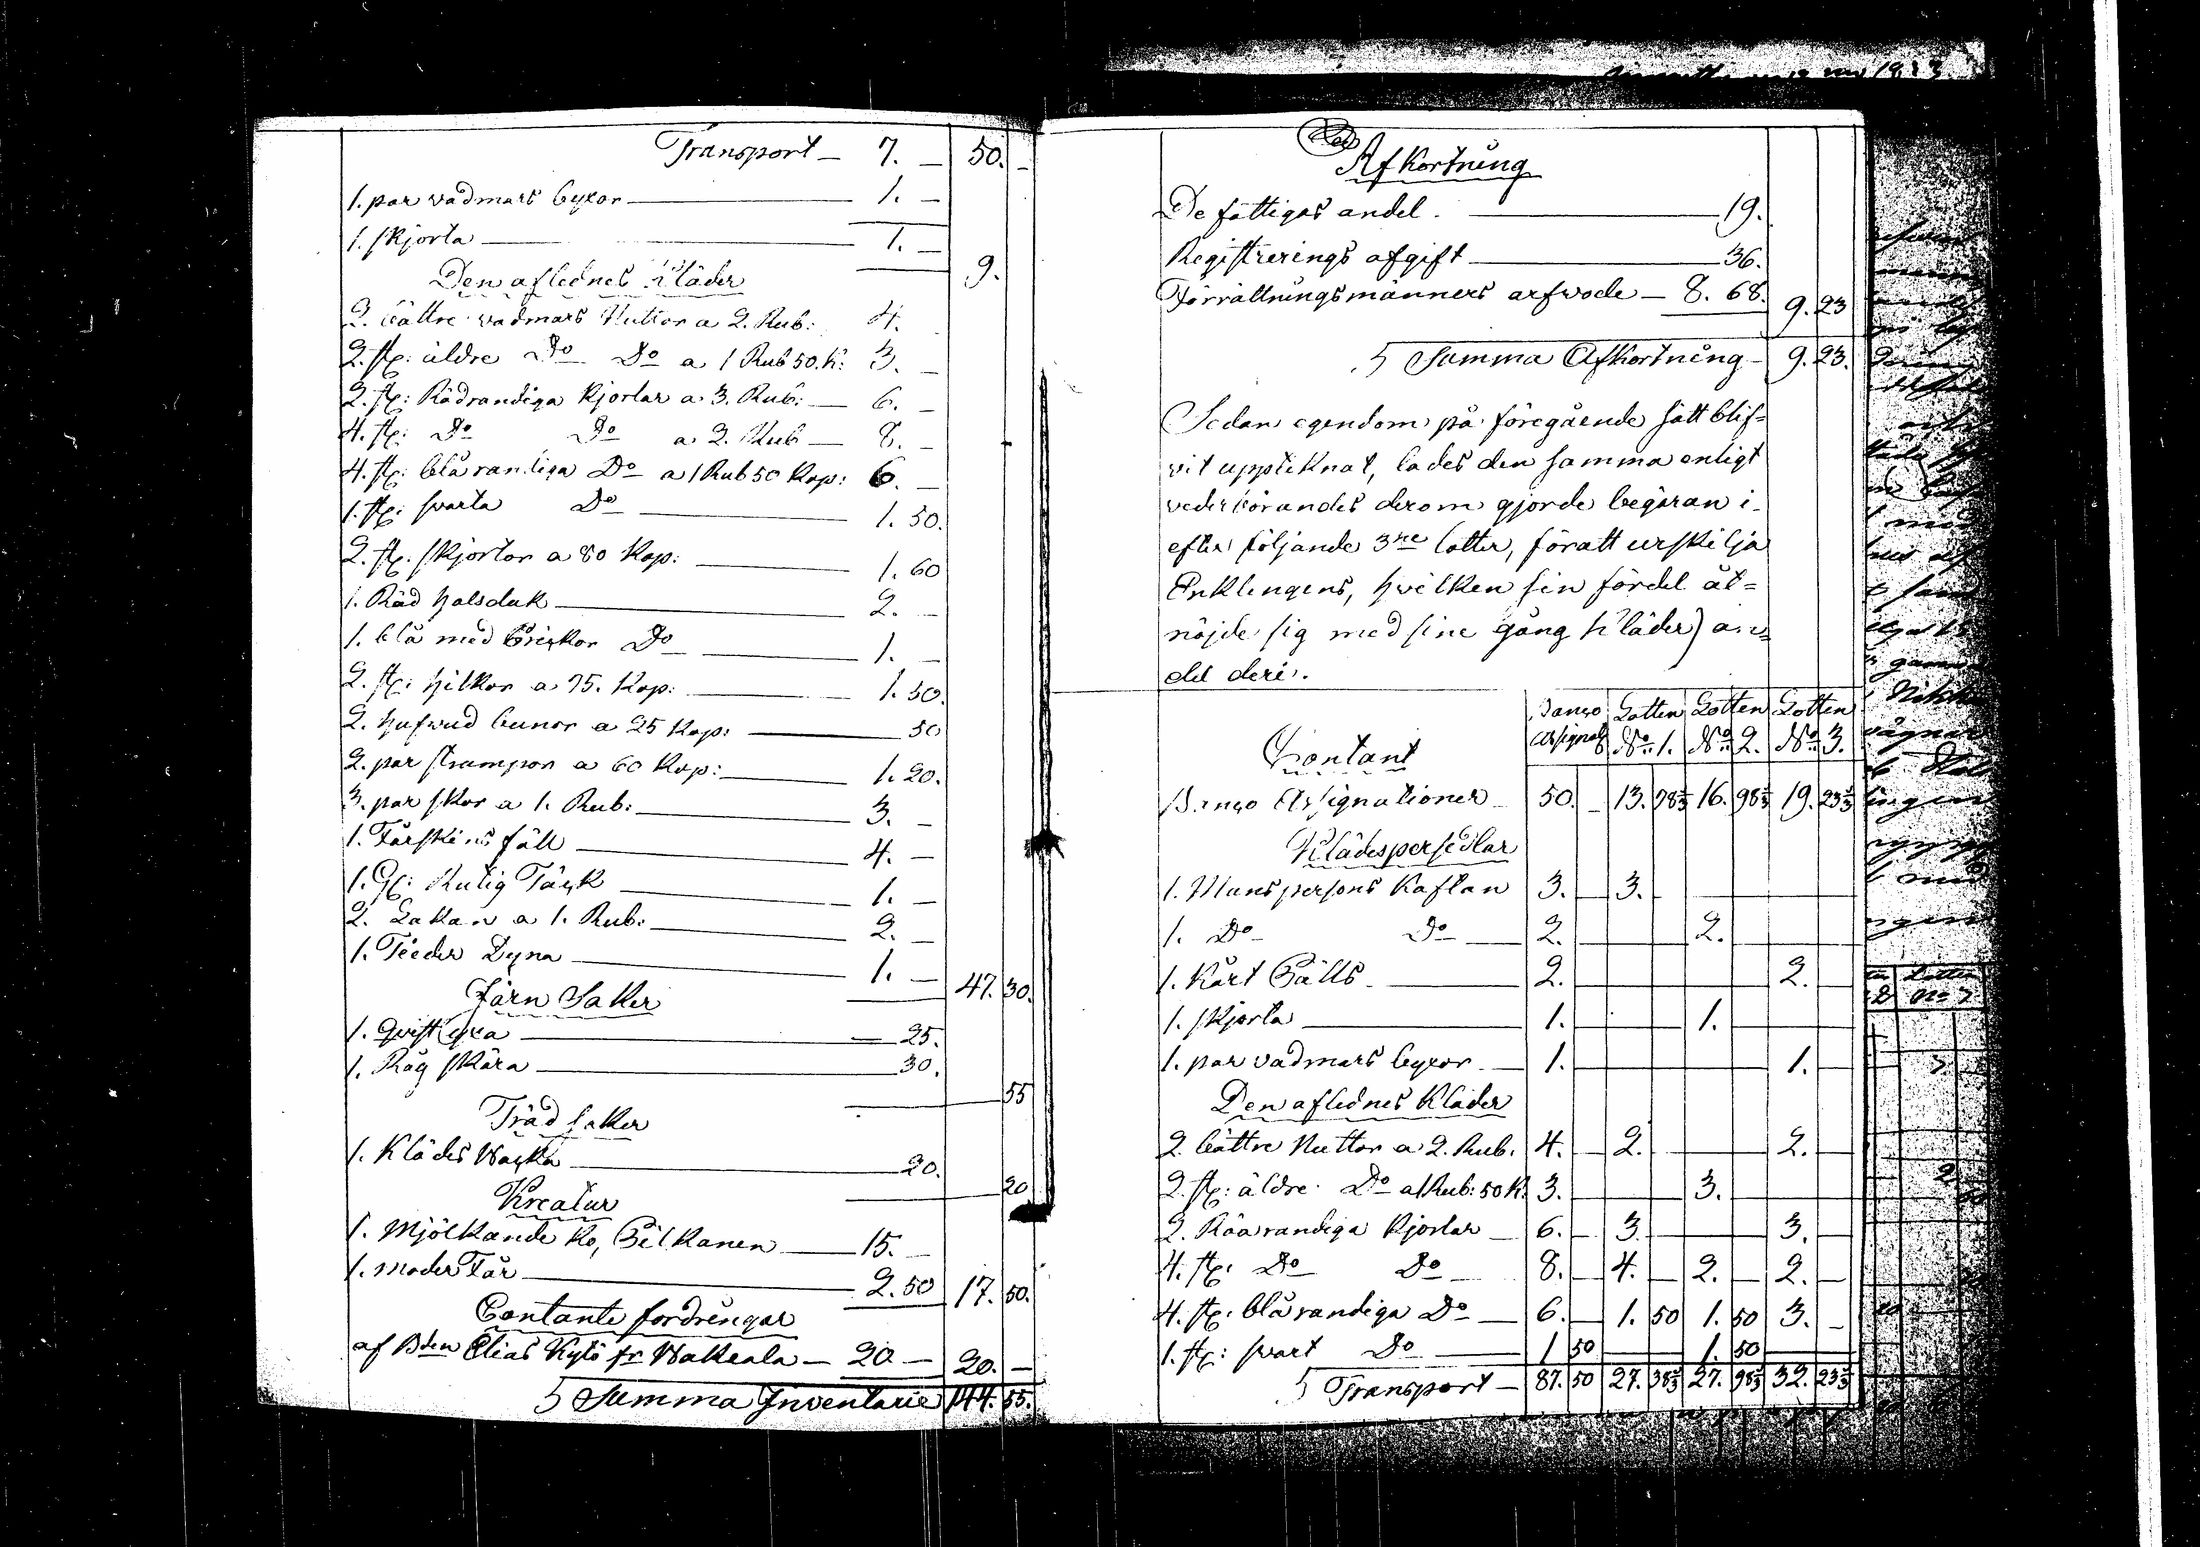 Transport — 7. — 50. —
1. par vadmars byxor — 1. —
1. skjorta — 1. — 9.
Den aflednes Kläder
2. bättre vadmars Nuttor a 2. Rub: 4.
2. st: äldre Do Do a 1 Rub 50. K: 3. —
2. st: Rödrandiga Kjortlar a 3. Rub: — 6. —
4. st: Do Do a 2. Rub — 8. —
4. st: blårandiga Do a 1 Rub 50 Kop: 6. —
1. st: svarta Do — 1. 50.
2. st: skjortor a 80 Kop: — 1. 60
1. Röd halsduk — 2. —
1. blå med Do — 1. —
2. st: hilkor a 75. Kop: — 1. 50.
2. hufwud bunor a 25 Kop: — 50
2. par strumpor a 60 Kop: — 1. 20.
3. par skor a 1. Rub: — 3. —
1. Fårskins fäll — 4. —
1. Gl: Rutig Täck — 1. —
2. Lakan a 1. Rub: — 2. —
1. Feeder Dyna — 1. — 47. 30.
Järn Saker
1. Qvist yxa — 25.
1. Råg skära — 30.
55
Träd saker
1. Klädes Wacka — 20.
20
Kreatur
1. Mjölkande Ko, Pilkanen — 15. —
1. moder Får — 2. 50 17. 50.
Contante fordringar
af Bden Elias Kylö fr Wakeala — 20 — 20. —
Summa Inventarie 144. 55.
Afkortning
De fattigas andel. — 19.
Registrerings afgift — 36.
Förrättningsmänners arfwode — 8. 68. 9. 23
Summa Afkortning — 9. 23.
Sedan egendom på föregående sätt blif=
vit uppteknat, lades den samma enligt
vederbörandes derom gjorde begäran i
efter följande 3ne lotter, föratt urskilja
Enklingens, hvilken sin fördel åt=
nöjde sig med sine gång Kläder) an=
del deri.
Banco Assignat Lotten No 1. Lotten No 2. Lotten No 3.
Contant
Banco Assignationer 50. — 13. 78⅓ 16. 98⅓ 19. 23⅓
Klädespersedlar
1. Manspersons Kaftan 3. — 3. —
1. Do Do — 2. — 2.
1. Kårt Pälts — 2. — 2. —
1. skjorta — 1. — 1. —
1. par vadmars byxor — 1. — 1. —
Den aflednes Kläder
2. bättre Nuttor a 2. Rub. 4. — 2. — 2. —
2. st: äldre Do a 1 Rub: 50 K. 3. — 3. —
2. Rödrandiga Kjortlar — 6. — 3. — 3. —
4. st: Do Do — 8. — 4. — 2. — 2. —
4. st: blårandiga Do — 6. — 1. 50 1. 50 3. —
1. st: svart Do — 1 50 — 1. 50
Transport — 87. 50 27. 38⅓ 27. 98⅓ 32. 23⅓